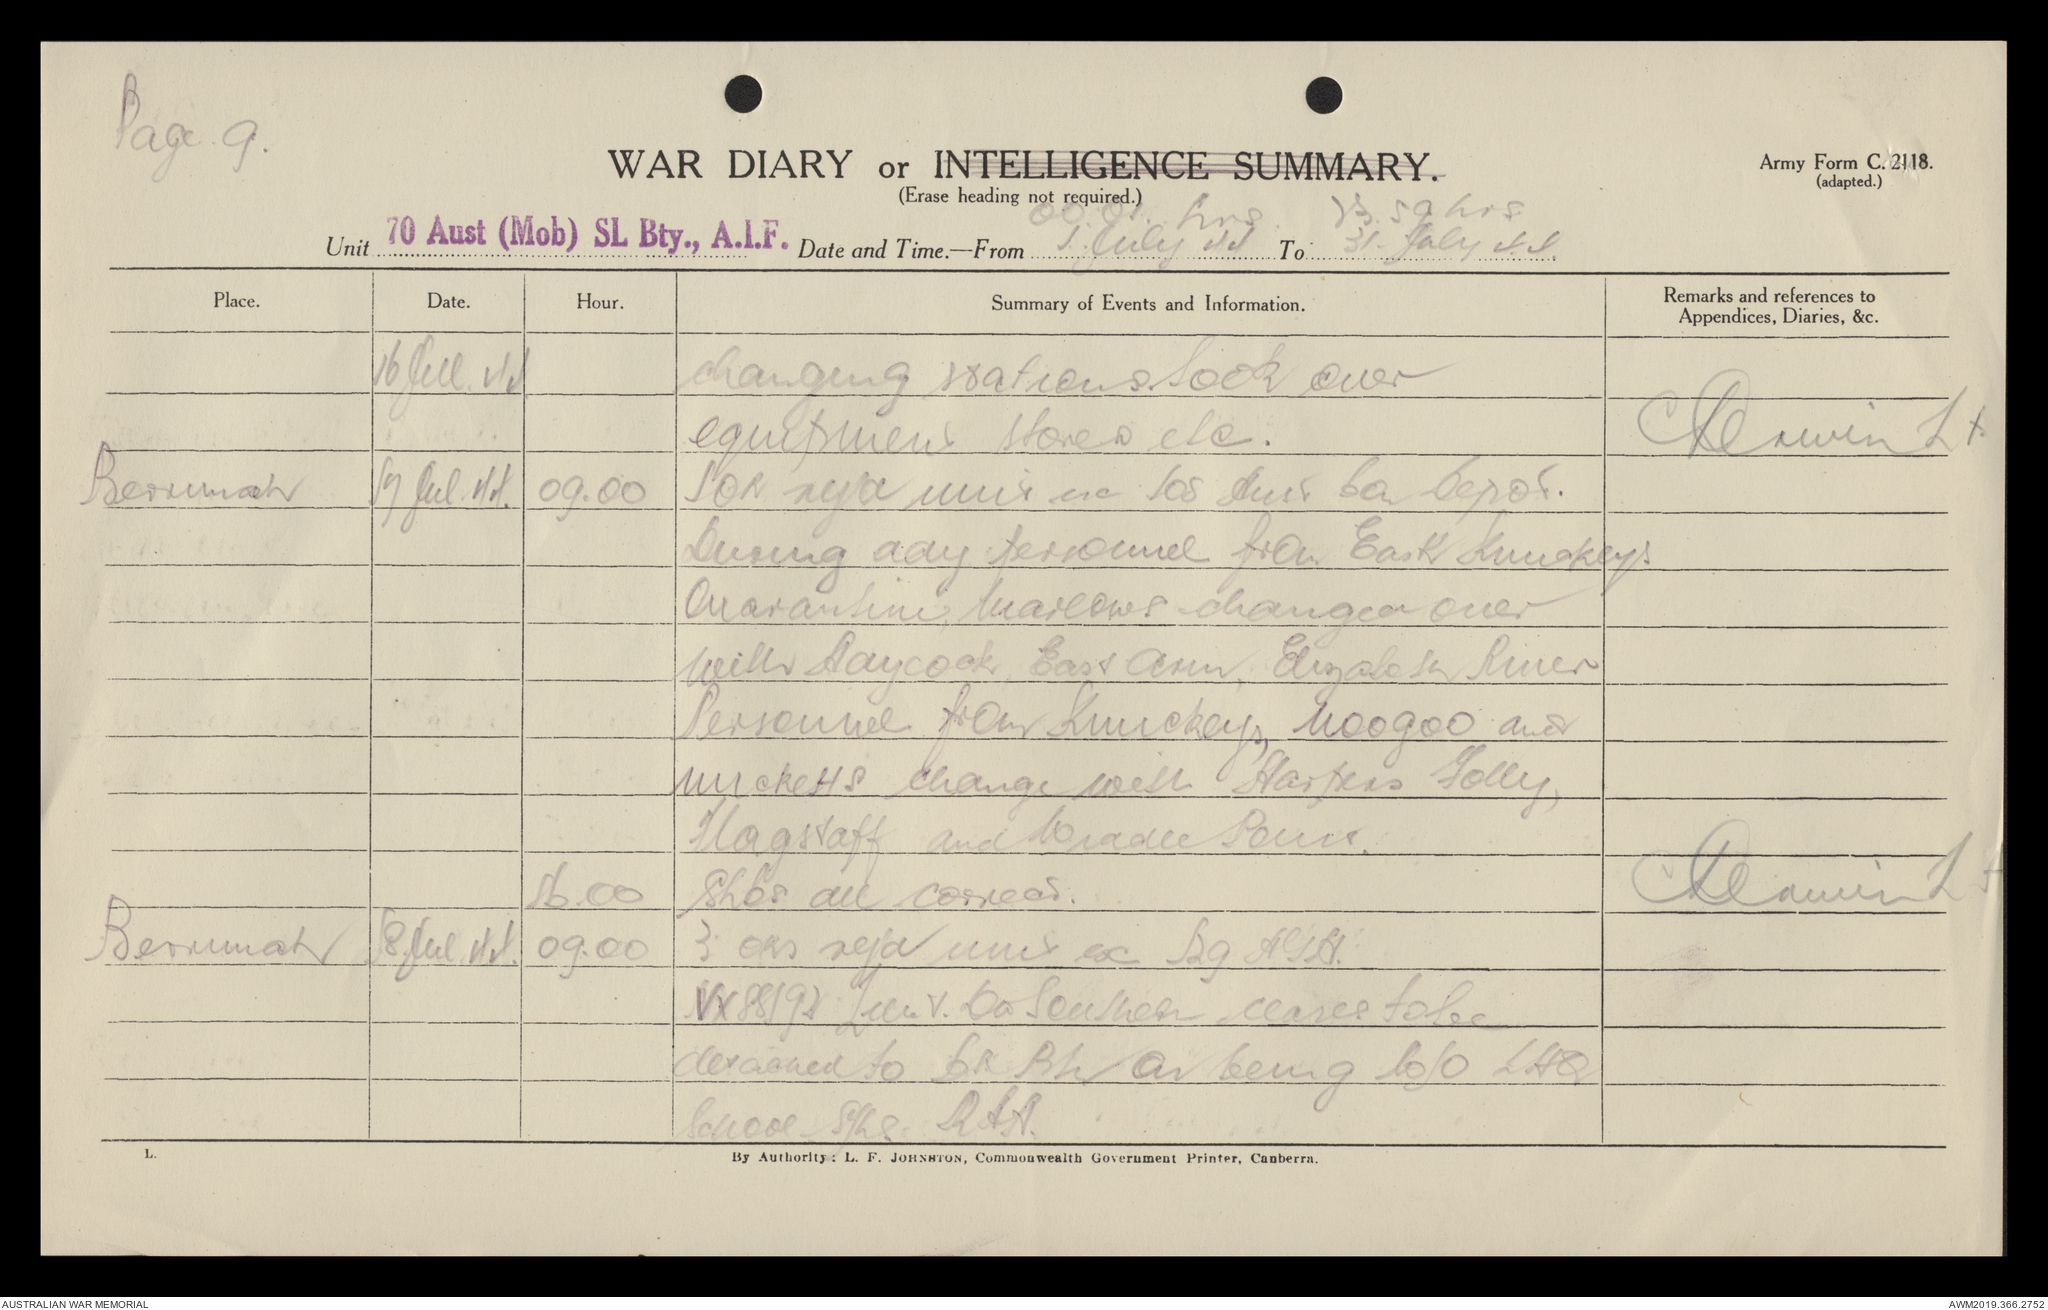 Page 9.
WAR DIARY or INTELLIGENCE SUMMARY.
(Erase heading not required.)
Army Form C. 2118.
(adapted.)
00.01 hrs 23.59 hrs
Unit 70 Aust (Mob) SL Bty., A.I.F. Date and Time.—From 1 July 44 To 31 July 44.
Place. Date. Hour. Summary of Events and Information. Remarks and references to
Appendices, Diaries, &c.
16 Jul. 44 changing stations took over
equipment stores etc.
Lt
Berrimah 17 Jul 44. 09.00 1 OR rejd unit ex Aust Depot.
During day personnel from East Knuckeys
Quarantine, Marlows changed over
with Haycock, East Arm, Elizabeth River
Personnel from Knuckeys, Noogoo and
Micketts change with Folly,
Flagstaff and Point.
16.00 all correct.
Lt
Berrimah 18 Jul. 44. 09.00 3 ORs rejd unit ex AGH.
Lieut. leaves to be
detached to being LHQ
School RAA.
L.
By Authority: L. F. Johnston, Commonwealth Government Printer, Canberra.
AUSTRALIAN WAR MEMORIAL
AWM2019.366.2752